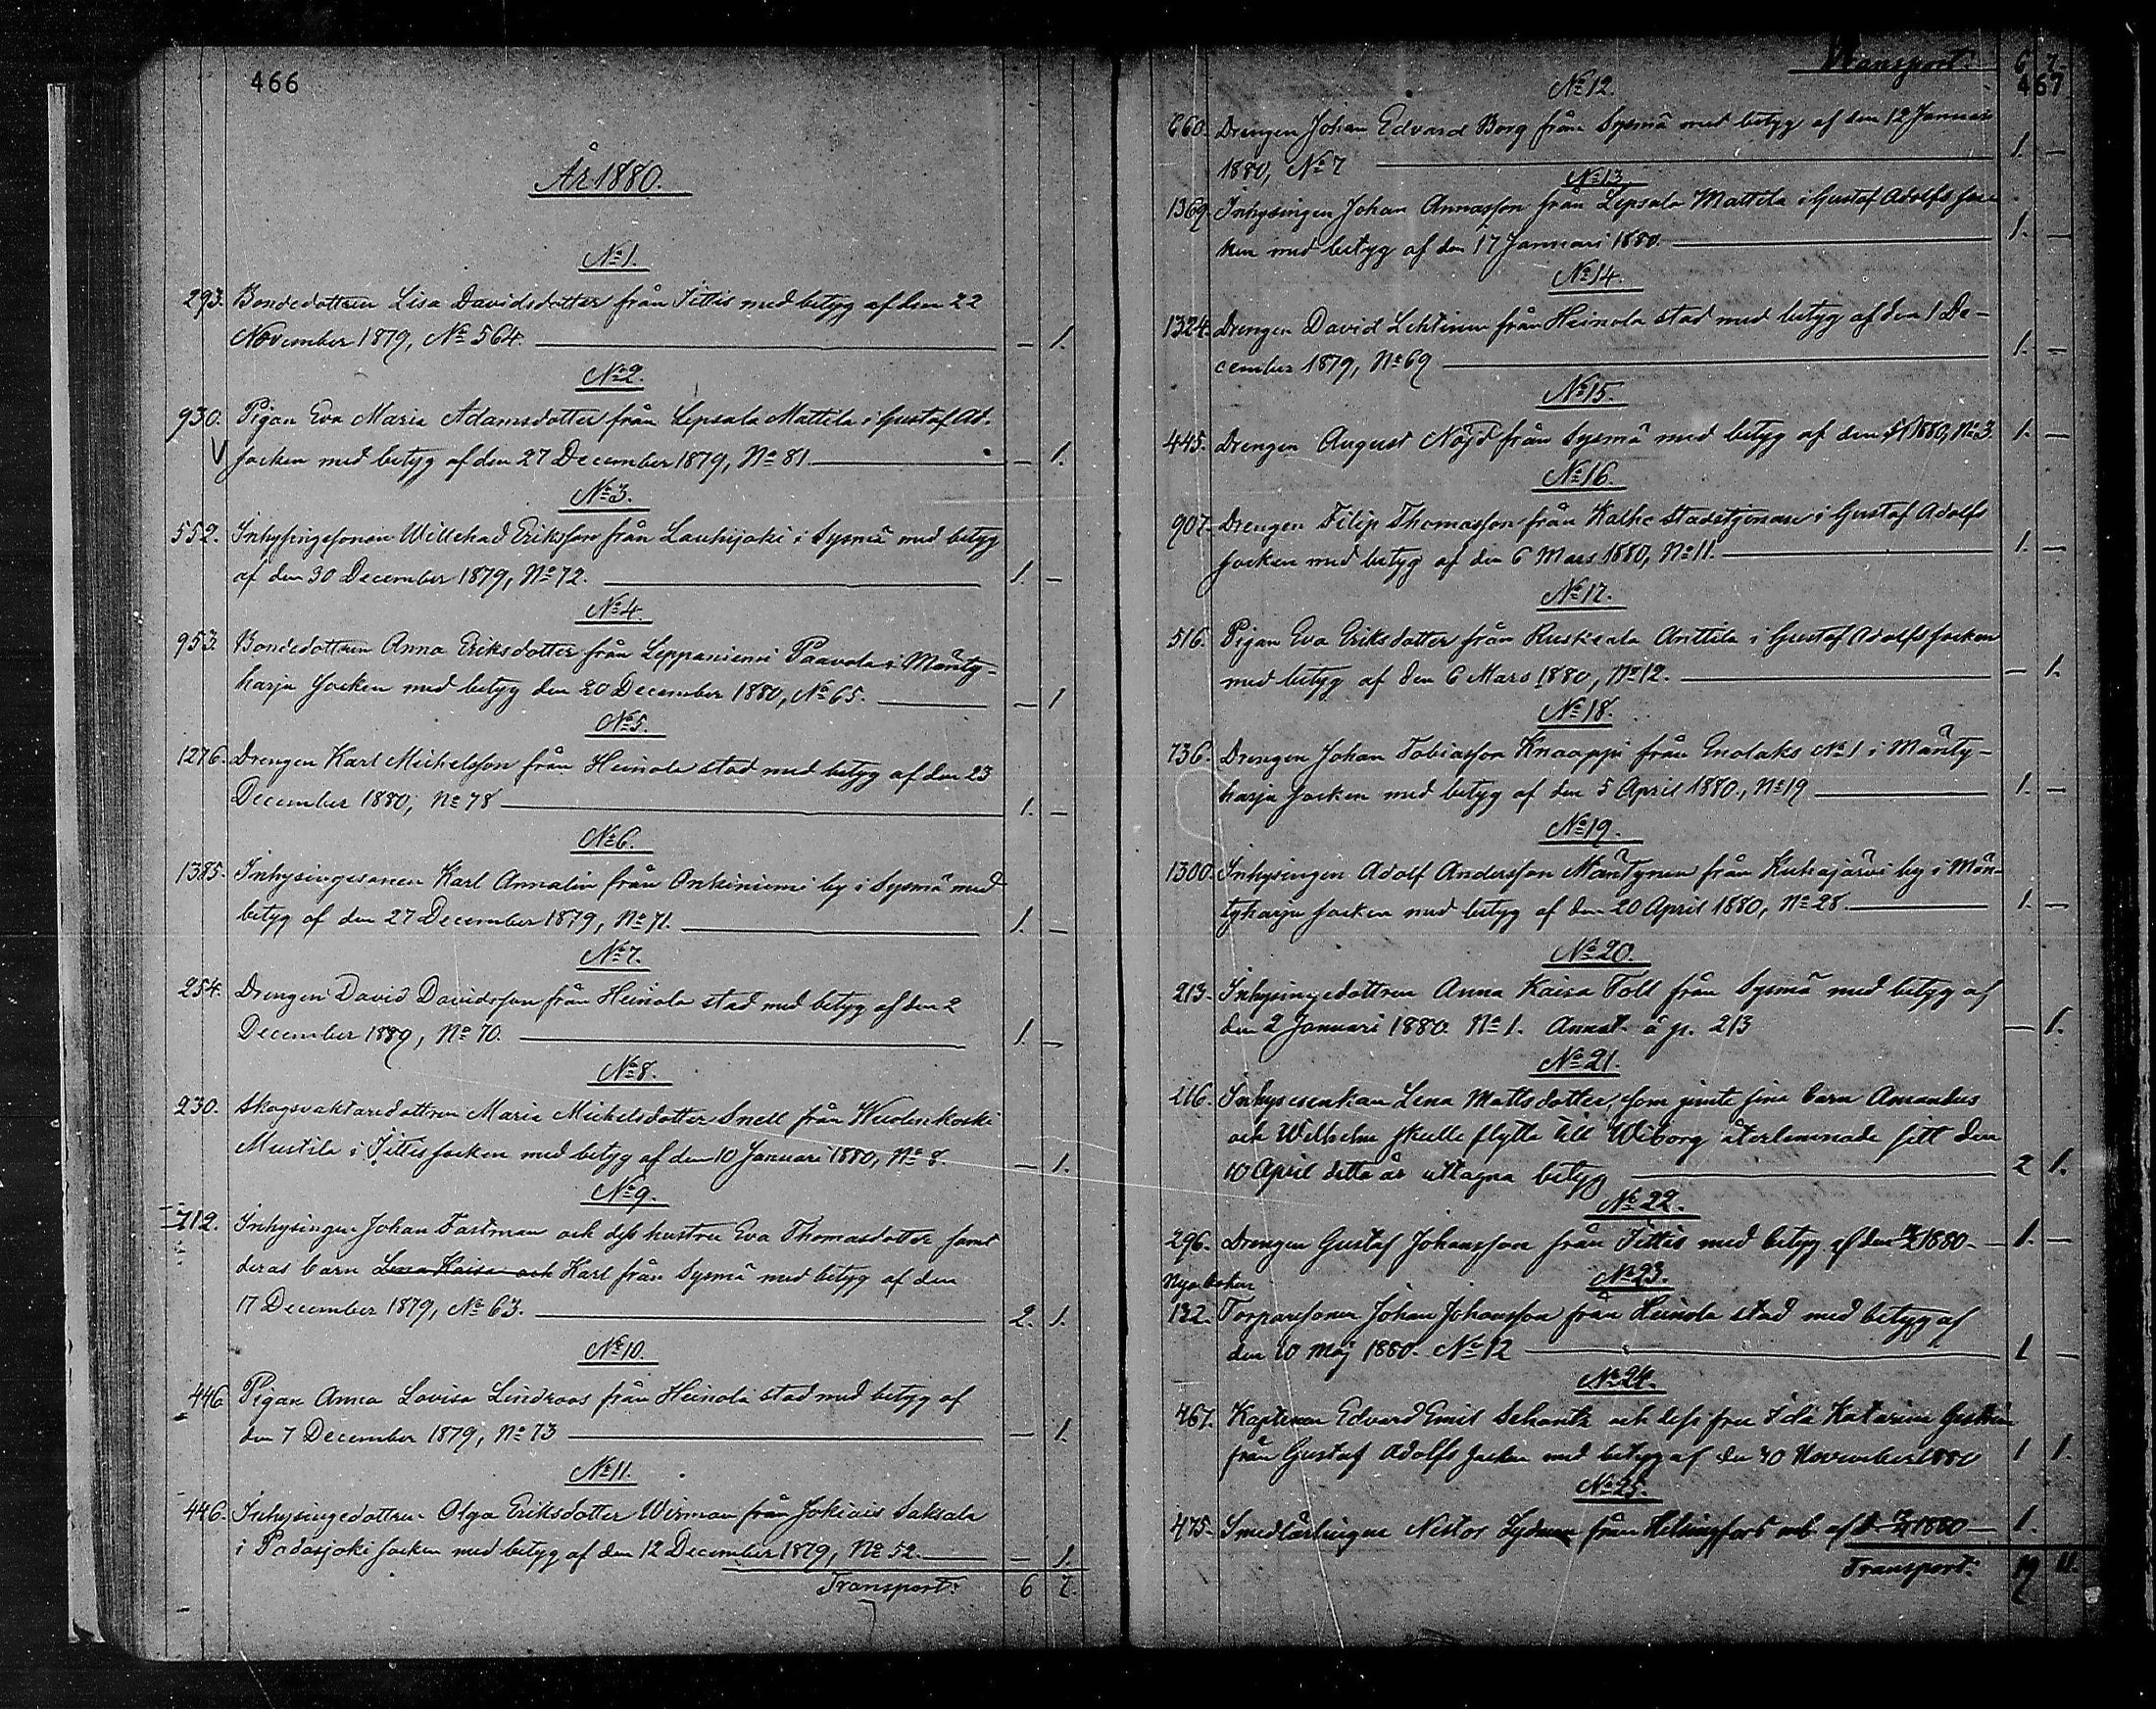 466
År 1880.
No 1.
293. Bondedottren Lisa Davidsdotter från Jittis med betyg af den 22
November 1879, No 564. — 1.
No 2.
930. Pigan Eva Maria Adamsdotter från Lepsala Mattila i Gustaf Ad.
V socken med betyg af den 27 December 1879, No 81 — 1.
No 3.
552. Inhysingesonen Willehad Eriksson från Lauhijoki i Sysmä med betyg
af den 30 December 1879, No 72. 1. —
No 4.
953. Bondedottren Anna Eriksdotter från Leppäniemi Paavola i Mänty-
harju socken med betyg den 20 December 1880, No 65. — 1
No 5.
1276. Drengen Karl Michelsson från Heinola stad med betyg af den 23
December 1880, No 78 1. —
No 6.
1385. Inhysingesonen Karl Annalin från Onkiniemi by i Sysmä med
betyg af den 27 December 1879, No 71. 1. —
No 7.
254. Drengen David Davidsson från Heinola stad med betyg af den 2
December 1889, No 70. 1. —
No 8.
230. Skogsvaktaredottren Maria Michelsdotter Snell från Wuolenkoski
Mustila i Jittis socken med betyg af den 10 Januari 1880, No 8. — 1.
No 9.
712. Inhysingen Johan Fastman och dess hustru Eva Thomasdotter samt
deras barn Lena Kaisa och Karl från Sysmä med betyg af den
17 December 1879, No 63. 2. 1.
No 10.
446 Pigan Anna Lovisa Lindroos från Heinola stad med betyg af
den 7 December 1879, No 73 — 1.
No 11.
446. Inhysingedottren Olga Eriksdotter Wirman från Jokiais Saksala
i Padasjoki socken med betyg af den 12 December 1879, No 52. — 1.
Transport: 6 7.
Transport: 6 7.
467
No 12.
660. Drengen Johan Edvard Borg från Sysmä med betyg af den 12 Januari
1880, No 7 1. —
No 13.
1369. Inhysingen Johan Annasson från Lepsala Mattila i Gustaf Adolfs soc-
ken med betyg af den 17 Januari 1880. 1. —
No 14.
1324. Drengen David Lehtinen från Heinola stad med betyg af den 1 De-
cember 1879, No 69 1. —
No 15.
445. Drengen August Nöjd från Sysmä med betyg af den 1880, No 3. 1. —
No 16.
907. Drengen Filip Thomasson från Kalho i Gustaf Adolfs
socken med betyg af den 6 Mars 1880, No 11. 1. —
No 17.
516. Pigan Eva Eriksdotter från Ruskeala Anttila i Gustaf Adolfs socken
med betyg af den 6 Mars 1880, No 12. — 1.
No 18.
736. Drengen Johan Tobiasson Knaappi från Enolaks No 1 i Mänty-
harju socken med betyg af den 5 April 1880, No 19 1. —
No 19.
1300. Inhysingen Adolf Andersson Mäntynen från Kuhajärvi by i Män-
tyharju socken med betyg af den 20 April 1880, No 28. 1. —
No 20.
213. Inhysingedottren Anna Kaisa Toll från Sysmä med betyg af
den 2 Januari 1880. No 1. Annot. å p. 213 — 1.
No 21.
216. Lena Mattsdotter, som jemte sina barn Amandus
och Wilhelm skulle flytta till Wiborg återlemnade sitt den
10 April detta år uttagna betyg 2 1.
No 22.
296. Drengen Gustaf Johansson från Jittis med betyg af den 1880 1. —
Nya boken
No 23.
132. Torparesonen Johan Johansson från Heinola stad med betyg af
den 10 Maj 1880. No 12 1 —
No 24.
467. Kaptenen Edvard Emil Schantz och dess fru Ida Katarina
från Gustaf Adolfs socken med betyg af den 30 November 1880 1 1.
No 25.
475. Smedlärlingen Nestor från Helsingfors m.b. af d. 1880 1.
Transport: 19 11.